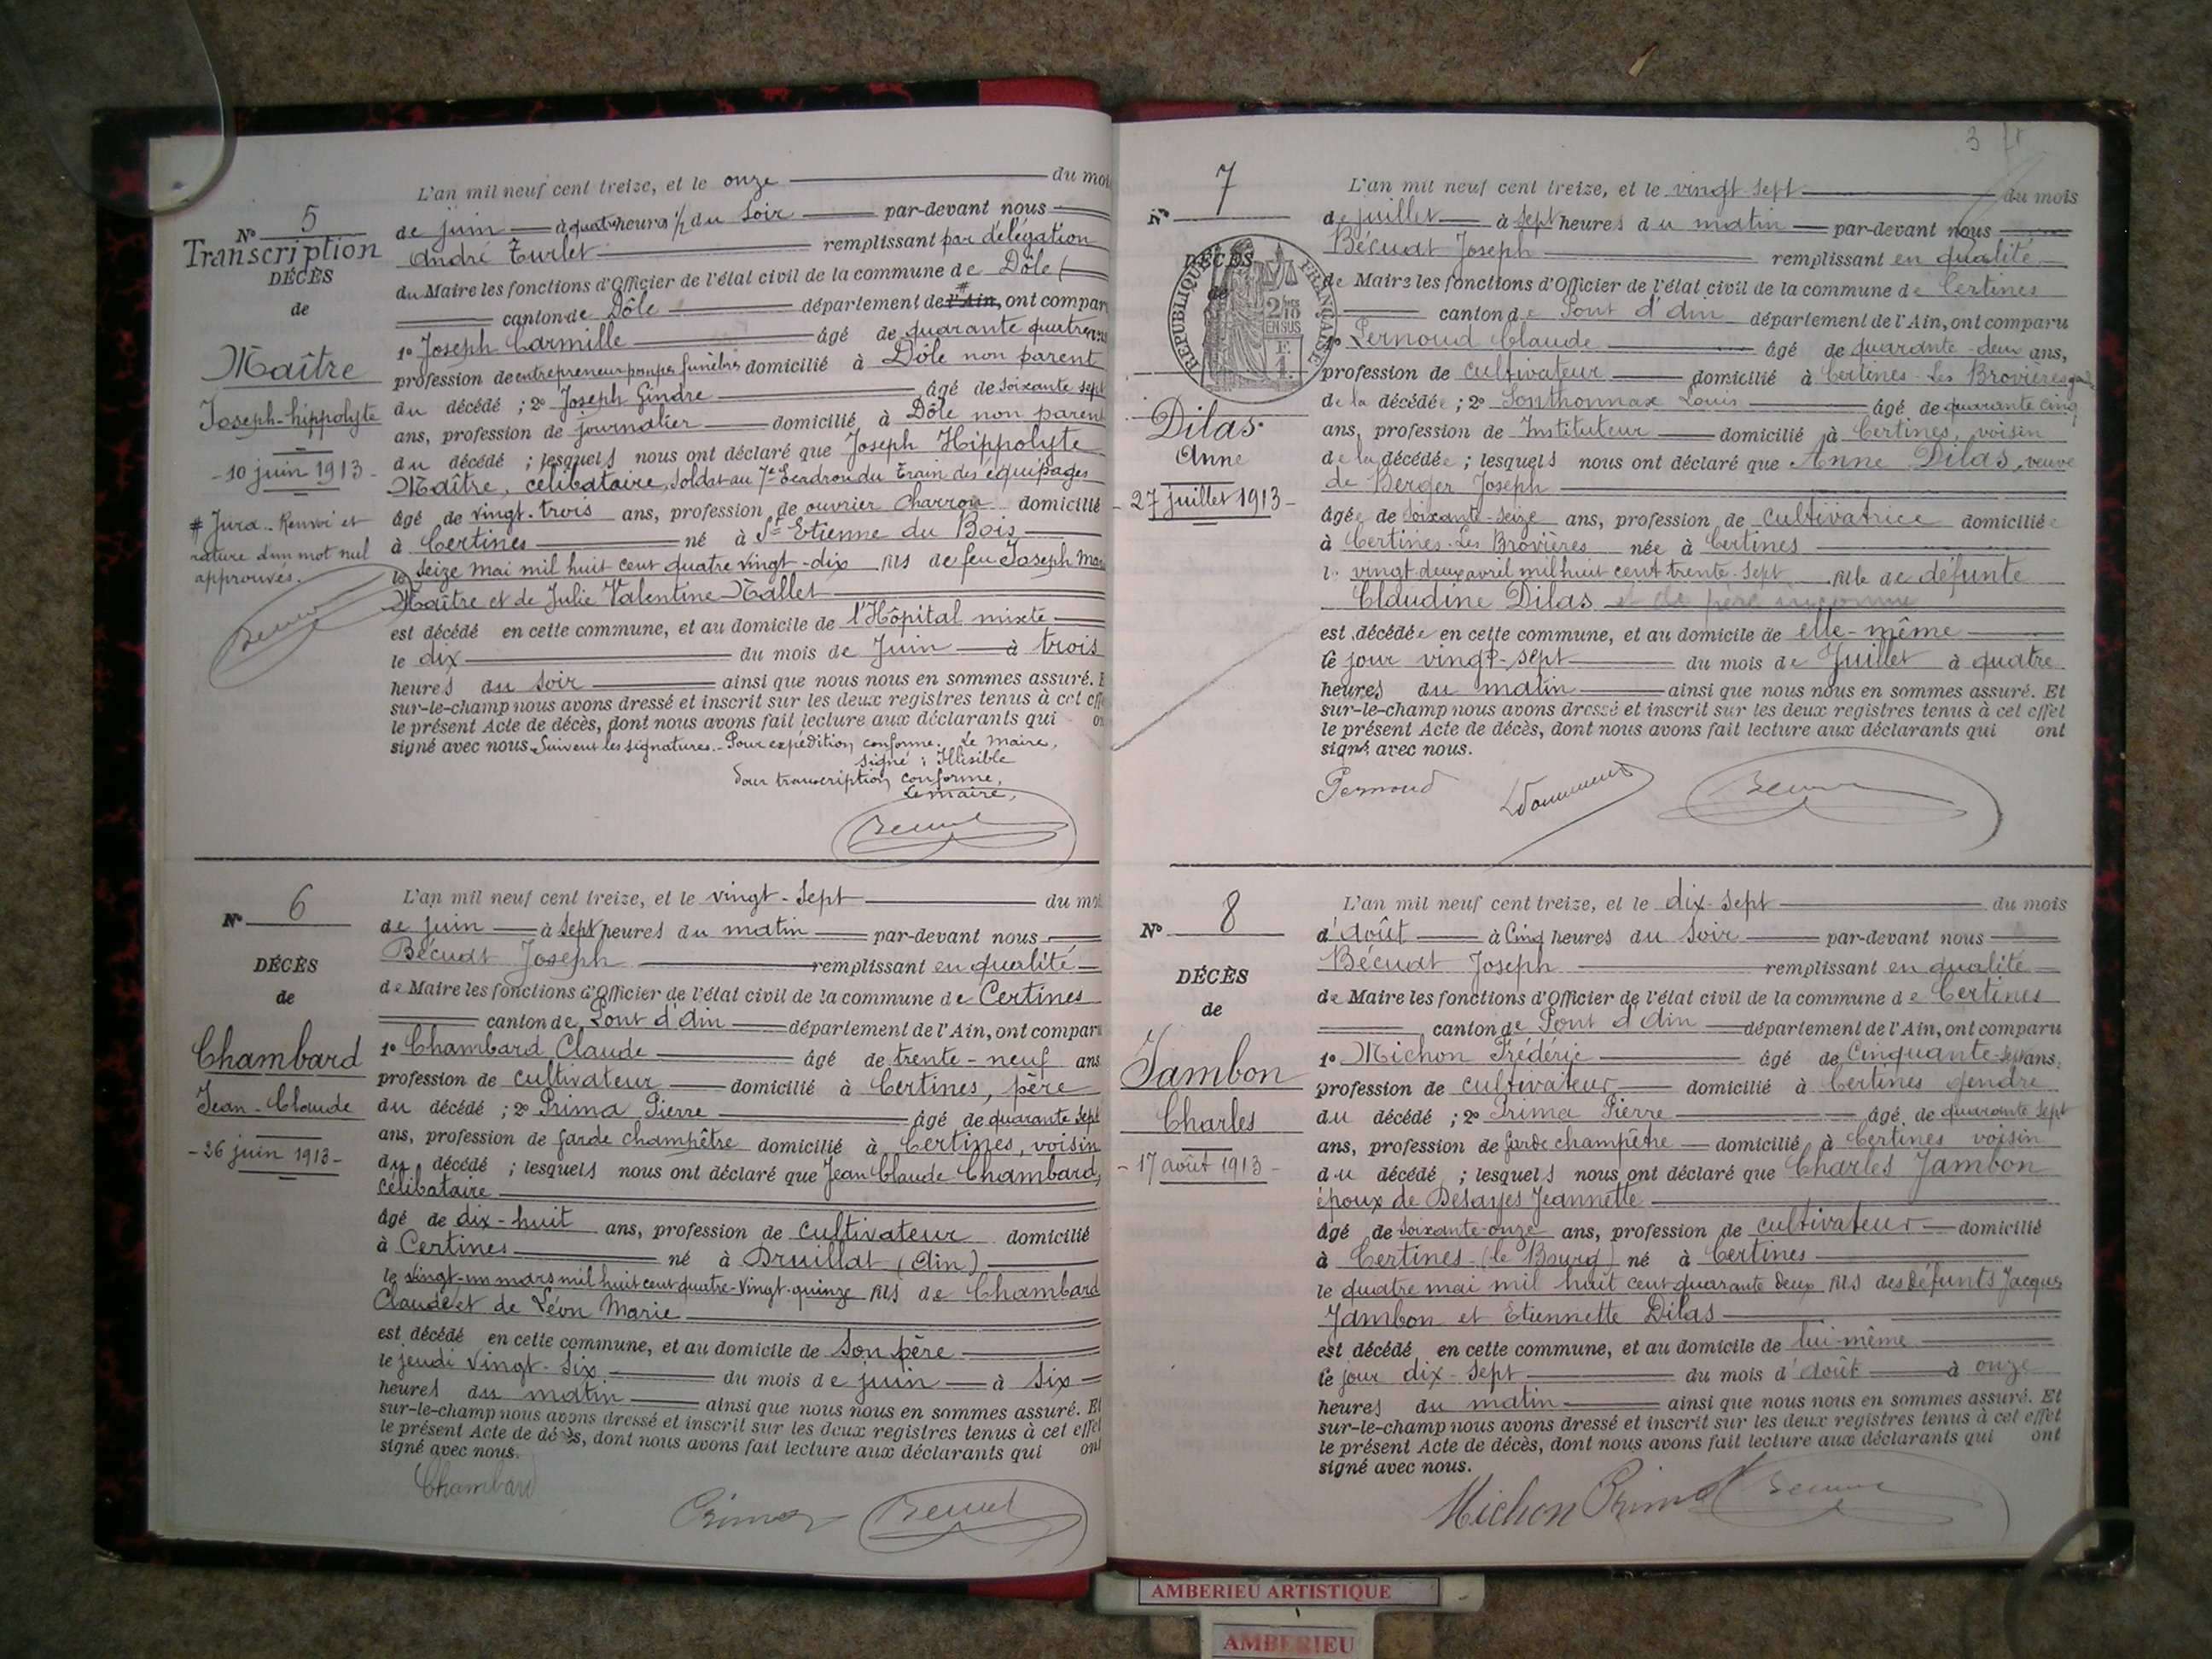 N° 5
Transcription
DÉCÈS
de
Maître
Joseph-hippolyte
- 10 juin 1913 -
# Jura. Renvoi et
rature d'un mot nul
approuvés.
L'an mil neuf cent treize, et le onze du mois
de juin à quatre heures 1/2 du soir par-devant nous
André Turlet remplissant par délégation
du Maire les fonctions d'Officier de l'état civil de la commune de Dôle
canton de Dôle département de l'Ain, ont compar
1° Joseph Carmille âgé de quarante quatre ans
profession de entrepreneur pompes funèbres domicilié à Dôle non parent
du décédé ; 2° Joseph Gindre âgé de soixante sept
ans, profession de journalier domicilié à Dôle non parent
du décédé ; lesquels nous ont déclaré que Joseph Hippolyte
Maître, célibataire, soldat au 7e Escadron du Train des équipages
âgé de vingt-trois ans, profession de ouvrier charron domicilié
à Certines né à St Etienne du Bois
le seize mai mil huit cent quatre vingt-dix fils de feu Joseph Ma
Maître et de Julie Valentine Nallet
est décédé en cette commune, et au domicile de l'Hôpital mixte
le dix du mois de Juin à trois
heures du soir ainsi que nous nous en sommes assuré. E
sur-le-champ nous avons dressé et inscrit sur les deux registres tenus à cet effe
le présent Acte de décès, dont nous avons fait lecture aux déclarants qui on
signé avec nous. Suivent les signatures. - Pour expédition conforme. Le Maire,
signé : Illisible
Pour transcription conforme,
Le maire,
N° 6
DÉCÈS
de
Chambard
Jean-Claude
- 26 juin 1913 -
L'an mil neuf cent treize, et le vingt-sept du moi
de juin à sept heures du matin par-devant nous
Bécuat Joseph remplissant en qualité
de Maire les fonctions d'Officier de l'état civil de la commune de Certines
canton de Pont d'Ain département de l'Ain, ont comparu
1° Chambard Claude âgé de trente-neuf ans
profession de cultivateur domicilié à Certines, père
du décédé ; 2° Prima Pierre âgé de quarante sept
ans, profession de garde champêtre domicilié à Certines, voisin
du décédé ; lesquels nous ont déclaré que Jean Claude Chambard,
célibataire
âgé de dix-huit ans, profession de cultivateur domicilié
à Certines né à Druillat (Ain)
le vingt-un mars mil huit cent quatre-vingt-quinze fils de Chambard
Claude et de Léon Marie
est décédé en cette commune, et au domicile de son père
le jeudi vingt-six du mois de juin à six
heures du matin ainsi que nous nous en sommes assuré. Et
sur-le-champ nous avons dressé et inscrit sur les deux registres tenus à cet effet
le présent Acte de décès, dont nous avons fait lecture aux déclarants qui ont
signé avec nous.
Chambard
Prima
3
N° 7
DÉCÈS
de
RÉPUBLIQUE FRANÇAISE
2/10 EN SUS
Dilas
Anne
- 27 juillet 1913 -
L'an mil neuf cent treize, et le vingt-sept du mois
de juillet à sept heures du matin par-devant nous
Bécuat Joseph remplissant en qualité
de Maire les fonctions d'Officier de l'état civil de la commune de Certines
canton de Pont d'Ain département de l'Ain, ont comparu
1° Pernoud Claude âgé de quarante-deux ans,
profession de cultivateur domicilié à Certines-Les Brovières
de la décédée ; 2° Sonthonnax Louis âgé de quarante cinq
ans, profession de Instituteur domicilié à Certines, voisin
de la décédée ; lesquels nous ont déclaré que Anne Dilas, veuve
de Berger Joseph
âgée de soixante-seize ans, profession de cultivatrice domiciliée
à Certines-Les Brovières née à Certines
le vingt deux avril mil huit cent trente-sept fille de défunte
Claudine Dilas et de père inconnu
est décédée en cette commune, et au domicile de elle-même
le jour vingt-sept du mois de Juillet à quatre
heures du matin ainsi que nous nous en sommes assuré. Et
sur-le-champ nous avons dressé et inscrit sur les deux registres tenus à cet effet
le présent Acte de décès, dont nous avons fait lecture aux déclarants qui ont
signé avec nous.
Pernoud
N° 8
DÉCÈS
de
Jambon
Charles
- 17 août 1913 -
L'an mil neuf cent treize, et le dix-sept du mois
d'août à cinq heures du soir par-devant nous
Bécuat Joseph remplissant en qualité
de Maire les fonctions d'Officier de l'état civil de la commune de Certines
canton de Pont d'Ain département de l'Ain, ont comparu
1° Michon Frédéric âgé de cinquante-sept ans,
profession de cultivateur domicilié à Certines gendre
du décédé ; 2° Prima Pierre âgé de quarante sept
ans, profession de garde champêtre domicilié à Certines voisin
du décédé ; lesquels nous ont déclaré que Charles Jambon
époux de Desayes Jeannette
âgé de soixante-onze ans, profession de cultivateur domicilié
à Certines (le Bourg) né à Certines
le quatre mai mil huit cent quarante deux fils des défunts Jacques
Jambon et Etiennette Dilas
est décédé en cette commune, et au domicile de lui-même
le jour dix-sept du mois d'août à onze
heures du matin ainsi que nous nous en sommes assuré. Et
sur-le-champ nous avons dressé et inscrit sur les deux registres tenus à cet effet
le présent Acte de décès, dont nous avons fait lecture aux déclarants qui ont
signé avec nous.
Michon Prima
AMBERIEU ARTISTIQUE
AMBERIEU